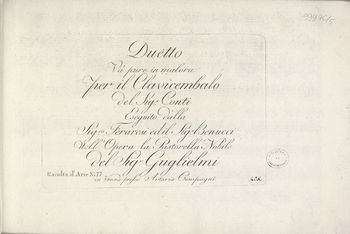 Duetto
Và pure in malora
per il Clavicembalo
del Sigr Conti
Eseguito dalla
Sigra Feraresi ed il Sigr Benucci
nell' Opera la Pastorella Nobile
del Sigr Guglielmi
Racolta d'Arie No 77
in Vienna presso Artaria Compagni